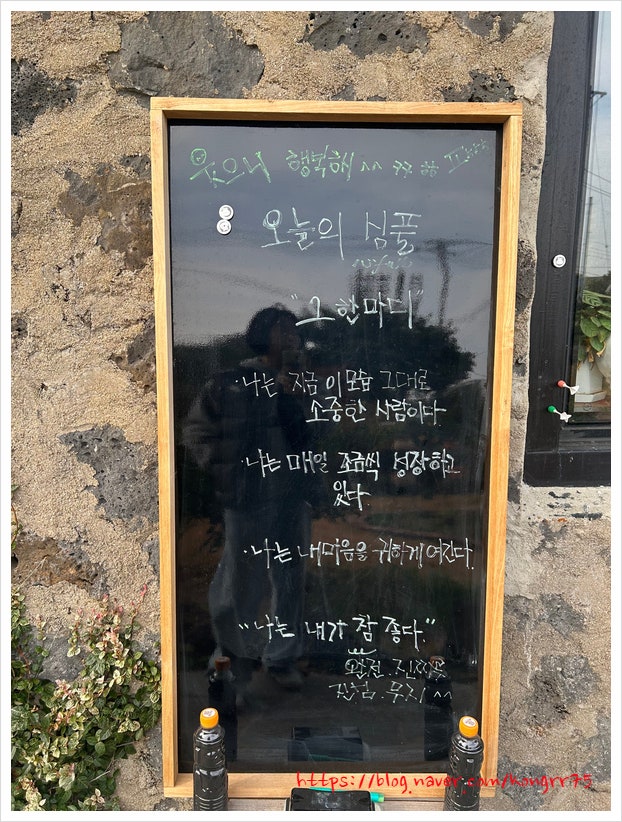 웃으니 행복해 ^^ ㅋㅋ ㅎㅎ
오늘의 심플
"그 한마디"
·나는 지금 이 모습 그대로
소중한 사람이다.
·나는 매일 조금씩 성장하고
있다.
·나는 내마음을 귀하게 여긴다.
"나는 내가 참 좋다."
완전. 진짜루
진심. 무지 ^^
https://blog.naver.com/kongrr75